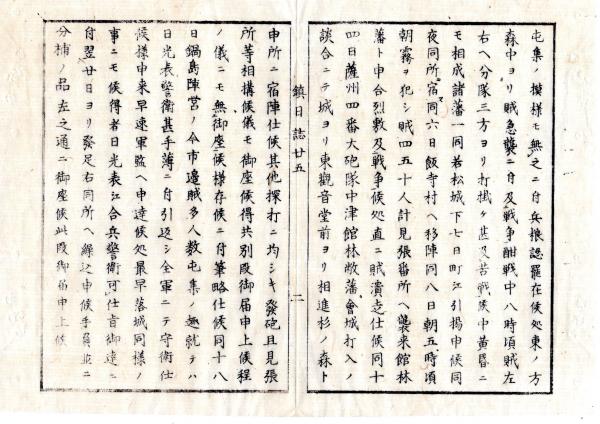 屯集ノ模様モ無之ニ付兵粮認罷在候処東ノ方
森中ヨリ賊急襲ニ付及戦争酣戦中八時頃賊左
右ヘ分隊三方ヨリ打掛ケ甚及苦戦候中黄昏ニ
モ相成諸藩一同若松城下七日町江引揚申候同
夜同所宿同六日飯寺村ヘ移陣同八日朝五時頃
朝霧ヲ犯シ賊四五十人計見張番所ヘ襲来館林
藩ト申合烈敷及戦争候処直ニ賊潰走仕候同十
四日薩州四番大砲隊中津館林弊藩會城打入ノ
談合ニテ城ヨリ東観音堂前ヨリ相進杉ノ森ト
鎮日誌廿五
二
申所ニ宿陣仕候其他探打ニ均シキ發砲且見張
所等相構候儀モ御座候得共別段御届申上候程
ノ儀ニモ無御座候様存候ニ付筆略仕候同十八
日鍋島陣営ノ令市邊賊多人数屯集ノ趣就テハ
日光表警衛甚手薄ニ付引返シ全軍ニテ守衛仕
候様申来早速軍監ヘ申達候処最早落城同様ノ
事ニモ候得者日光表江合兵警衛可仕旨御達ニ
付翌廿日ヨリ發足右同所ヘ繰込申候手負並ニ
分捕ノ品左之通ニ御座候此段御届申上候